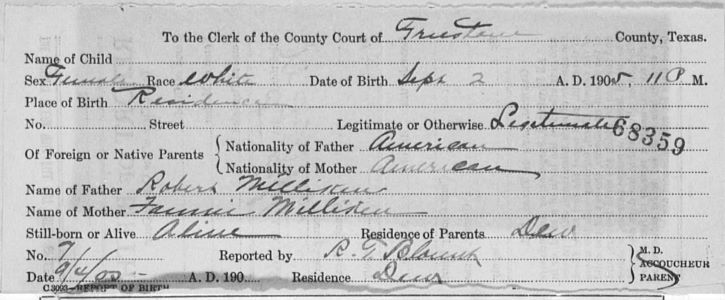 To the Clerk of the County Court of Freestone County, Texas.
Name of Child
Sex Female Race White Date of Birth Sept 2 A. D. 1905, 11 P M.
Place of Birth Residence
No. Street Legitimate or Otherwise Legitimate 68359
Of Foreign or Native Parents { Nationality of Father American
Nationality of Mother American
Name of Father Robert Milliken
Name of Mother Fannie Milliken
Still-born or Alive Alive Residence of Parents Dew
No. 7 Reported by R. T. Blount } M. D.
ACCOUCHEUR
Date 9/4/05 A. D. 190 Residence Dew PARENT
C 3093—REPORT OF BIRTH